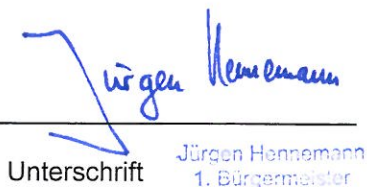 Jürgen Hennemann
Unterschrift
Jürgen Hennemann
1. Bürgermeister